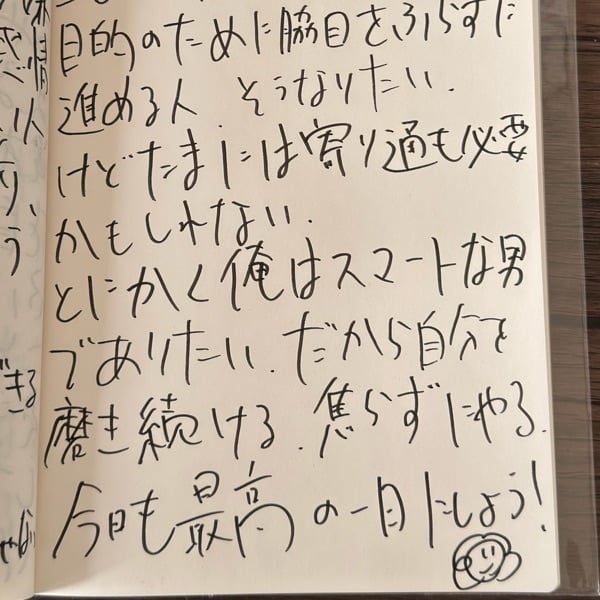 目的のために脇目をふらずに
進める人 そうなりたい.
けどたまには寄り通も必要
かもしれない.
とにかく俺はスマートな男
でありたい. だから自分を
磨き続ける. 焦らずにやる.
今日も最高の一日にしよう!